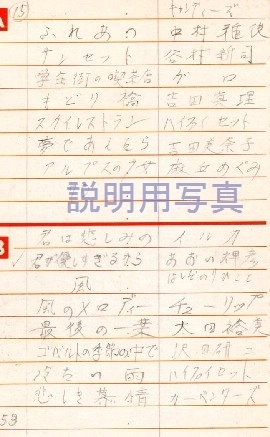 A
⑮ キャンディーズ
ふれあい 中村雅俊
サンセット 谷村新司
学生街の喫茶店 ガロ
もどり橋 吉田真理
スカイレストラン ハイファイセット
夢であえたら 吉田美奈子
アルプスの少女 麻丘めぐみ
説明用写真
B
君は悲しみの イルカ
君が優しすぎるから あおい輝彦
風 はしだのりひこ
風のメロディー チューリップ
最後の一葉 太田裕美
コバルトの季節の中で 沢田研二
冷たい雨 ハイファイセット
悲しき慕情 カーペンターズ
53